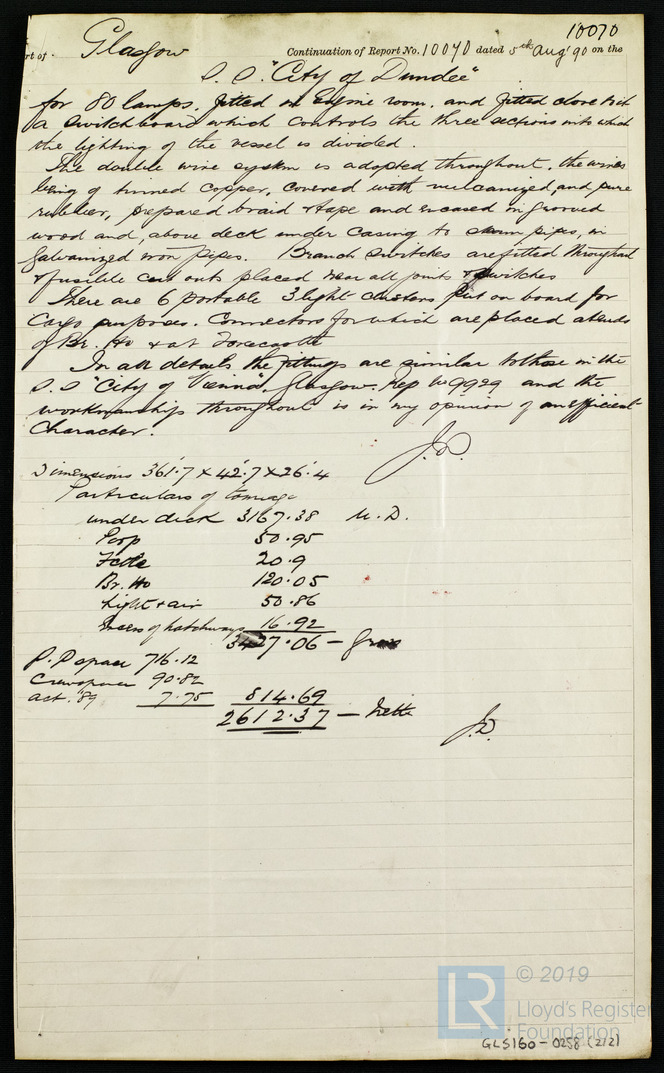 10070
rt of Glasgow Continuation of Report No. 10070 dated 5th Augt 90 on the
S.S. "City of Dundee"
for 80 lamps, fitted in Engine room, and fitted close to it
a switchboard which controls the three sections into which
the lighting of the vessel is divided.
The double wire system is adopted throughout, the wires
being of tinned copper, covered with vulcanized and pure
rubber, prepared braid & tape and encased in grooved
wood and, above deck under casing to steam pipes, in
galvanized iron pipes. Branch switches are fitted throughout
& fusible cut outs placed near all joints & switches
There are 6 portable 3 light clusters put on board for
Cargo purposes. Connectors for which are placed at ends
of Br. Ho & at Forecastle
In all details the fittings are similar to those in the
S.S "City of Vienna", Glasgow. Rep No 9929 and the
workmanship throughout is in my opinion of an efficient
character.
J.D.
Dimensions 361.7 x 42.7 x 26.4
Particulars of tonnage
under deck 3167.38 U.D.
Poop 50.95
Fcle 20.9
Br. Ho 120.05
Light & air 50.86
Excess of hatchways 16.92
3427.06 — Gross
P. P space 716.12
Crewspace 90.82
Act. '89 7.75 814.69
2612.37 — Nett
J.D.
LR © 2019
Lloyd's Register
Foundation
GLS160-0258 (2/2)